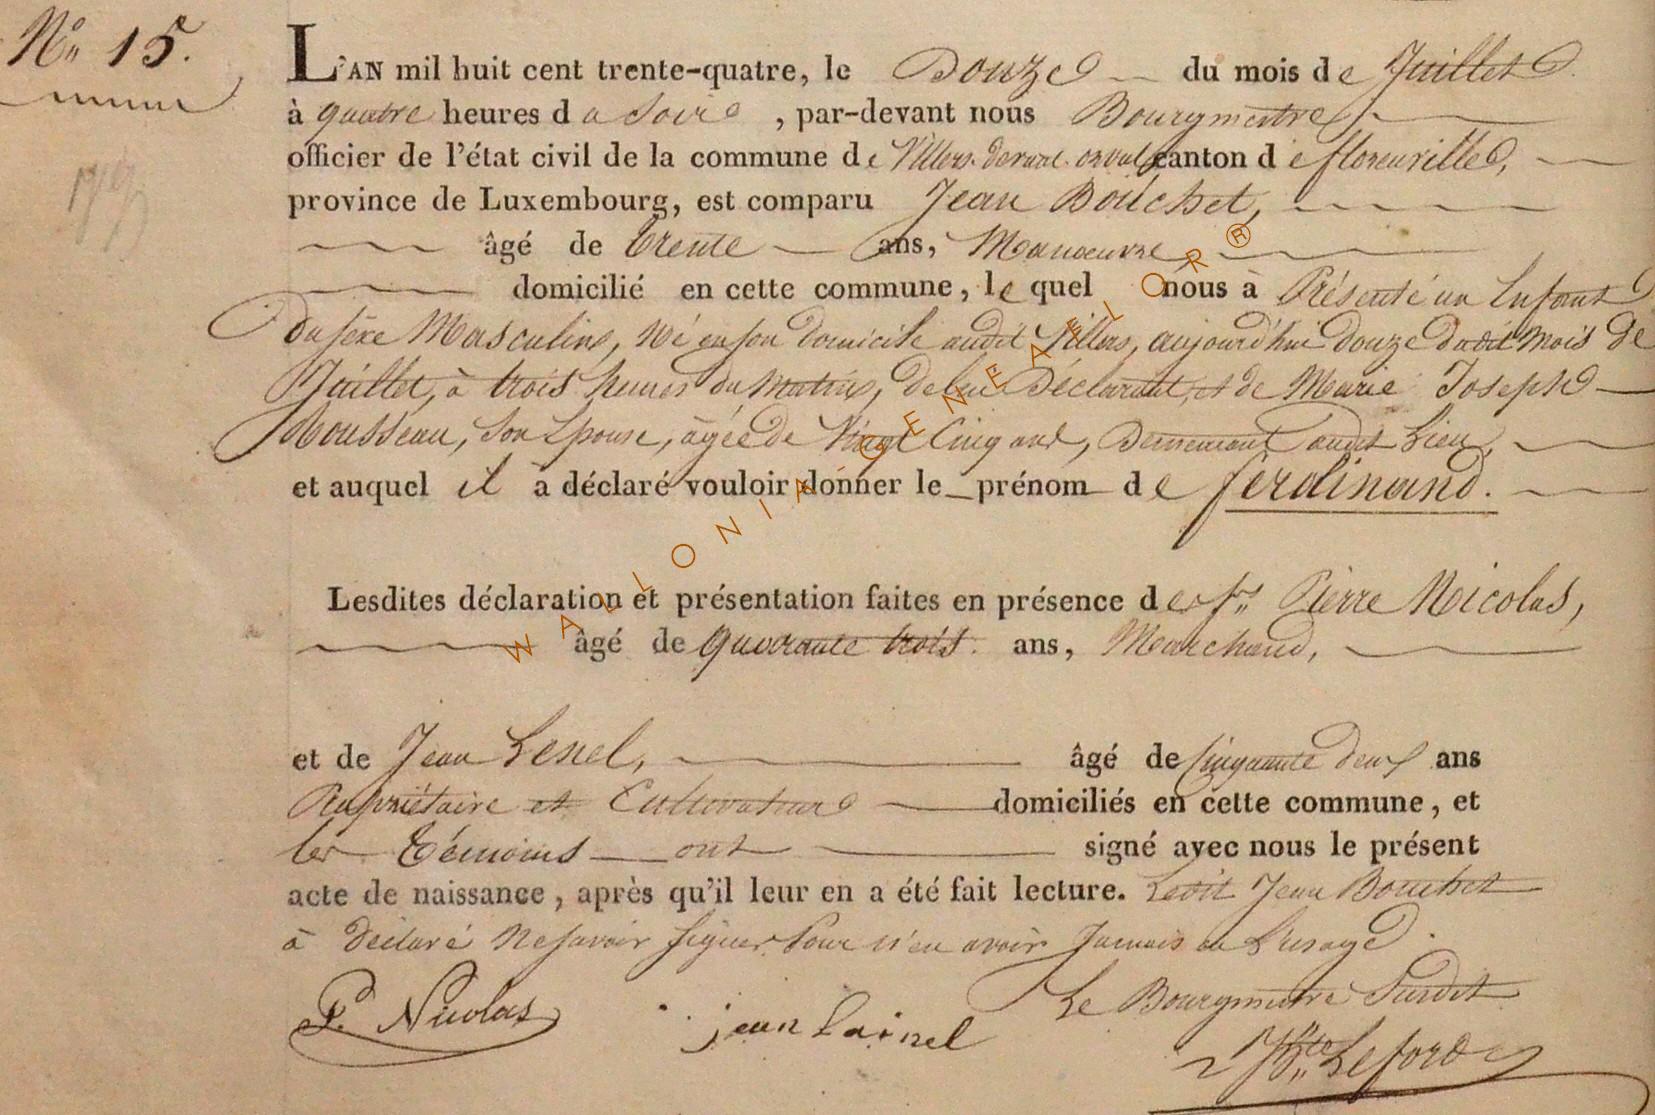 N.° 15.
L'AN mil huit cent trente-quatre, le Douze du mois de Juillet
à quatre heures du Soir, par-devant nous Bourgmestre,
officier de l'état civil de la commune de Villers-devant-orval, canton de florenville,
province de Luxembourg, est comparu Jean Bouchet,
âgé de trente ans, Manoeuvre
domicilié en cette commune, lequel nous à Présenté un Enfant
du sexe Masculin, Né en son domicile audit Villers, aujourd'hui douze dudit mois de
Juillet, à trois heures du Matin, de lui Déclarant, et de Marie Joseph
Rousseau, Son Epouse, âgée de Vingt Cinq ans, Demeurant audit Lieu,
et auquel il à déclaré vouloir donner le prénom de ferdinand.
Lesdites déclaration et présentation faites en présence des Srs Pierre Nicolas,
âgé de quarante trois ans, Marchand,
et de Jean Lenel, âgé de Cinquante deux ans
Propriétaire et Cultivateur domiciliés en cette commune, et
les Témoins ont signé avec nous le présent
acte de naissance, après qu'il leur en a été fait lecture. Ledit Jean Bouchet
à déclaré Ne savoir signer Pour n'en avoir Jamais eu L'usage.
Le Bourgmestre Susdit
P. Nicolas jean Lainel
Jbte Leford
WALLONIA GENEALOR®